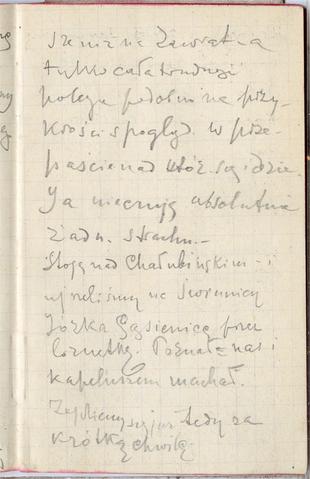 sze niż na Zawrat a
tylko cała trudność
polega podobno na przy-
krości spogląd. w prze-
paście nad któż się idzie.
Ja nie czuję absolutnie
żadn. strachu.-
Stoję nad Chałubińskim - i
ujrzeliśmy na Świnnicy
Józka Gąsienicę przez
lornetkę. Poznał nas i
kapeluszem machał.
się już tedy za
krótką chwilę.